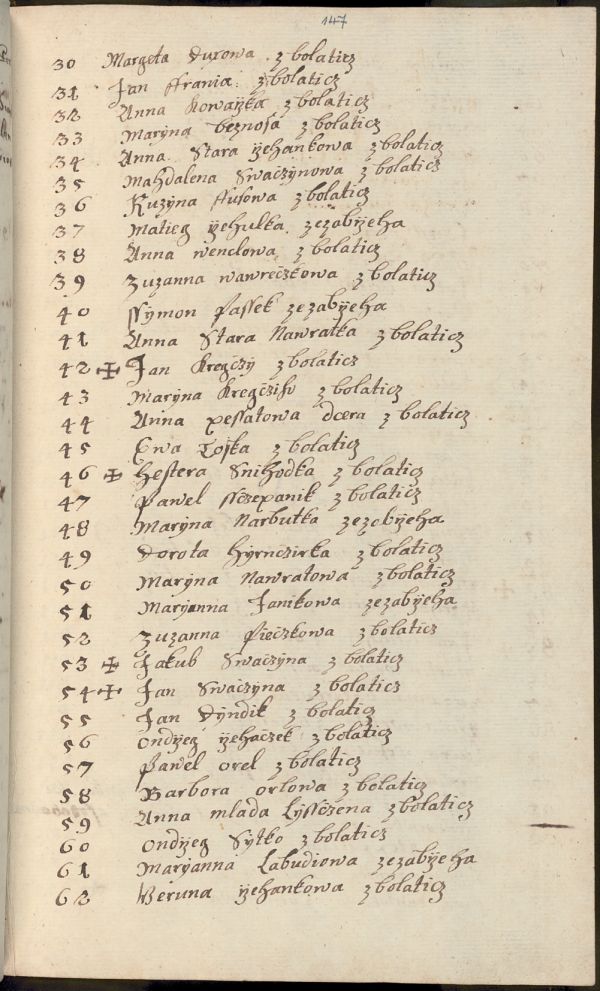 147
30 Margeta Duxowa z bolaticz
31 Jan ffrania z bolaticz
32 Anna Kowařka z bolaticz
33 Maryna beznosa z bolaticz
34 Anna Stara ÿehankowa z bolaticz
35 Mahdalena Swaczynowa z bolaticz
36 Kuzyna ffusowa z bolaticz
37 Matieg ÿehulka zezabÿeha
38 Anna wenclowa z bolaticz
39 Zuzanna wawreczkowa z bolaticz
40 ssÿmon Passek zezabÿeha
41 Anna Stara Nawratka z bolaticz
42 ✠ Jan Kregczÿ z bolaticz
43 Marÿna z bolaticz
44 Anna pessatowa dcera z bolaticz
45 Ewa z bolaticz
46 ✠ hestera Snihodka z bolaticz
47 Pawel ssczepanik z bolaticz
48 Marÿna Narbutka zezabÿeha
49 Dorota hÿrnczirka z bolaticz
50 Marÿna Nawratowa z bolaticz
51 Marÿanna Janikowa zezabÿeha
52 Zuzanna Pieczkowa z bolaticz
53 ✠ Jakub Swaczÿna z bolaticz
54 ✠ Jan Swaczÿna z bolaticz
55 Jan Dÿndik z bolaticz
56 ondÿeg ÿehaczek z bolaticz
57 Pawel orel z bolaticz
58 Barbora orlowa z bolaticz
59 Anna mlada Lÿssczena z bolaticz
60 ondÿeg Sÿtko z bolaticz
61 Marÿanna Labudiowa zezabÿeha
62 Weruna ÿehankowa z bolaticz